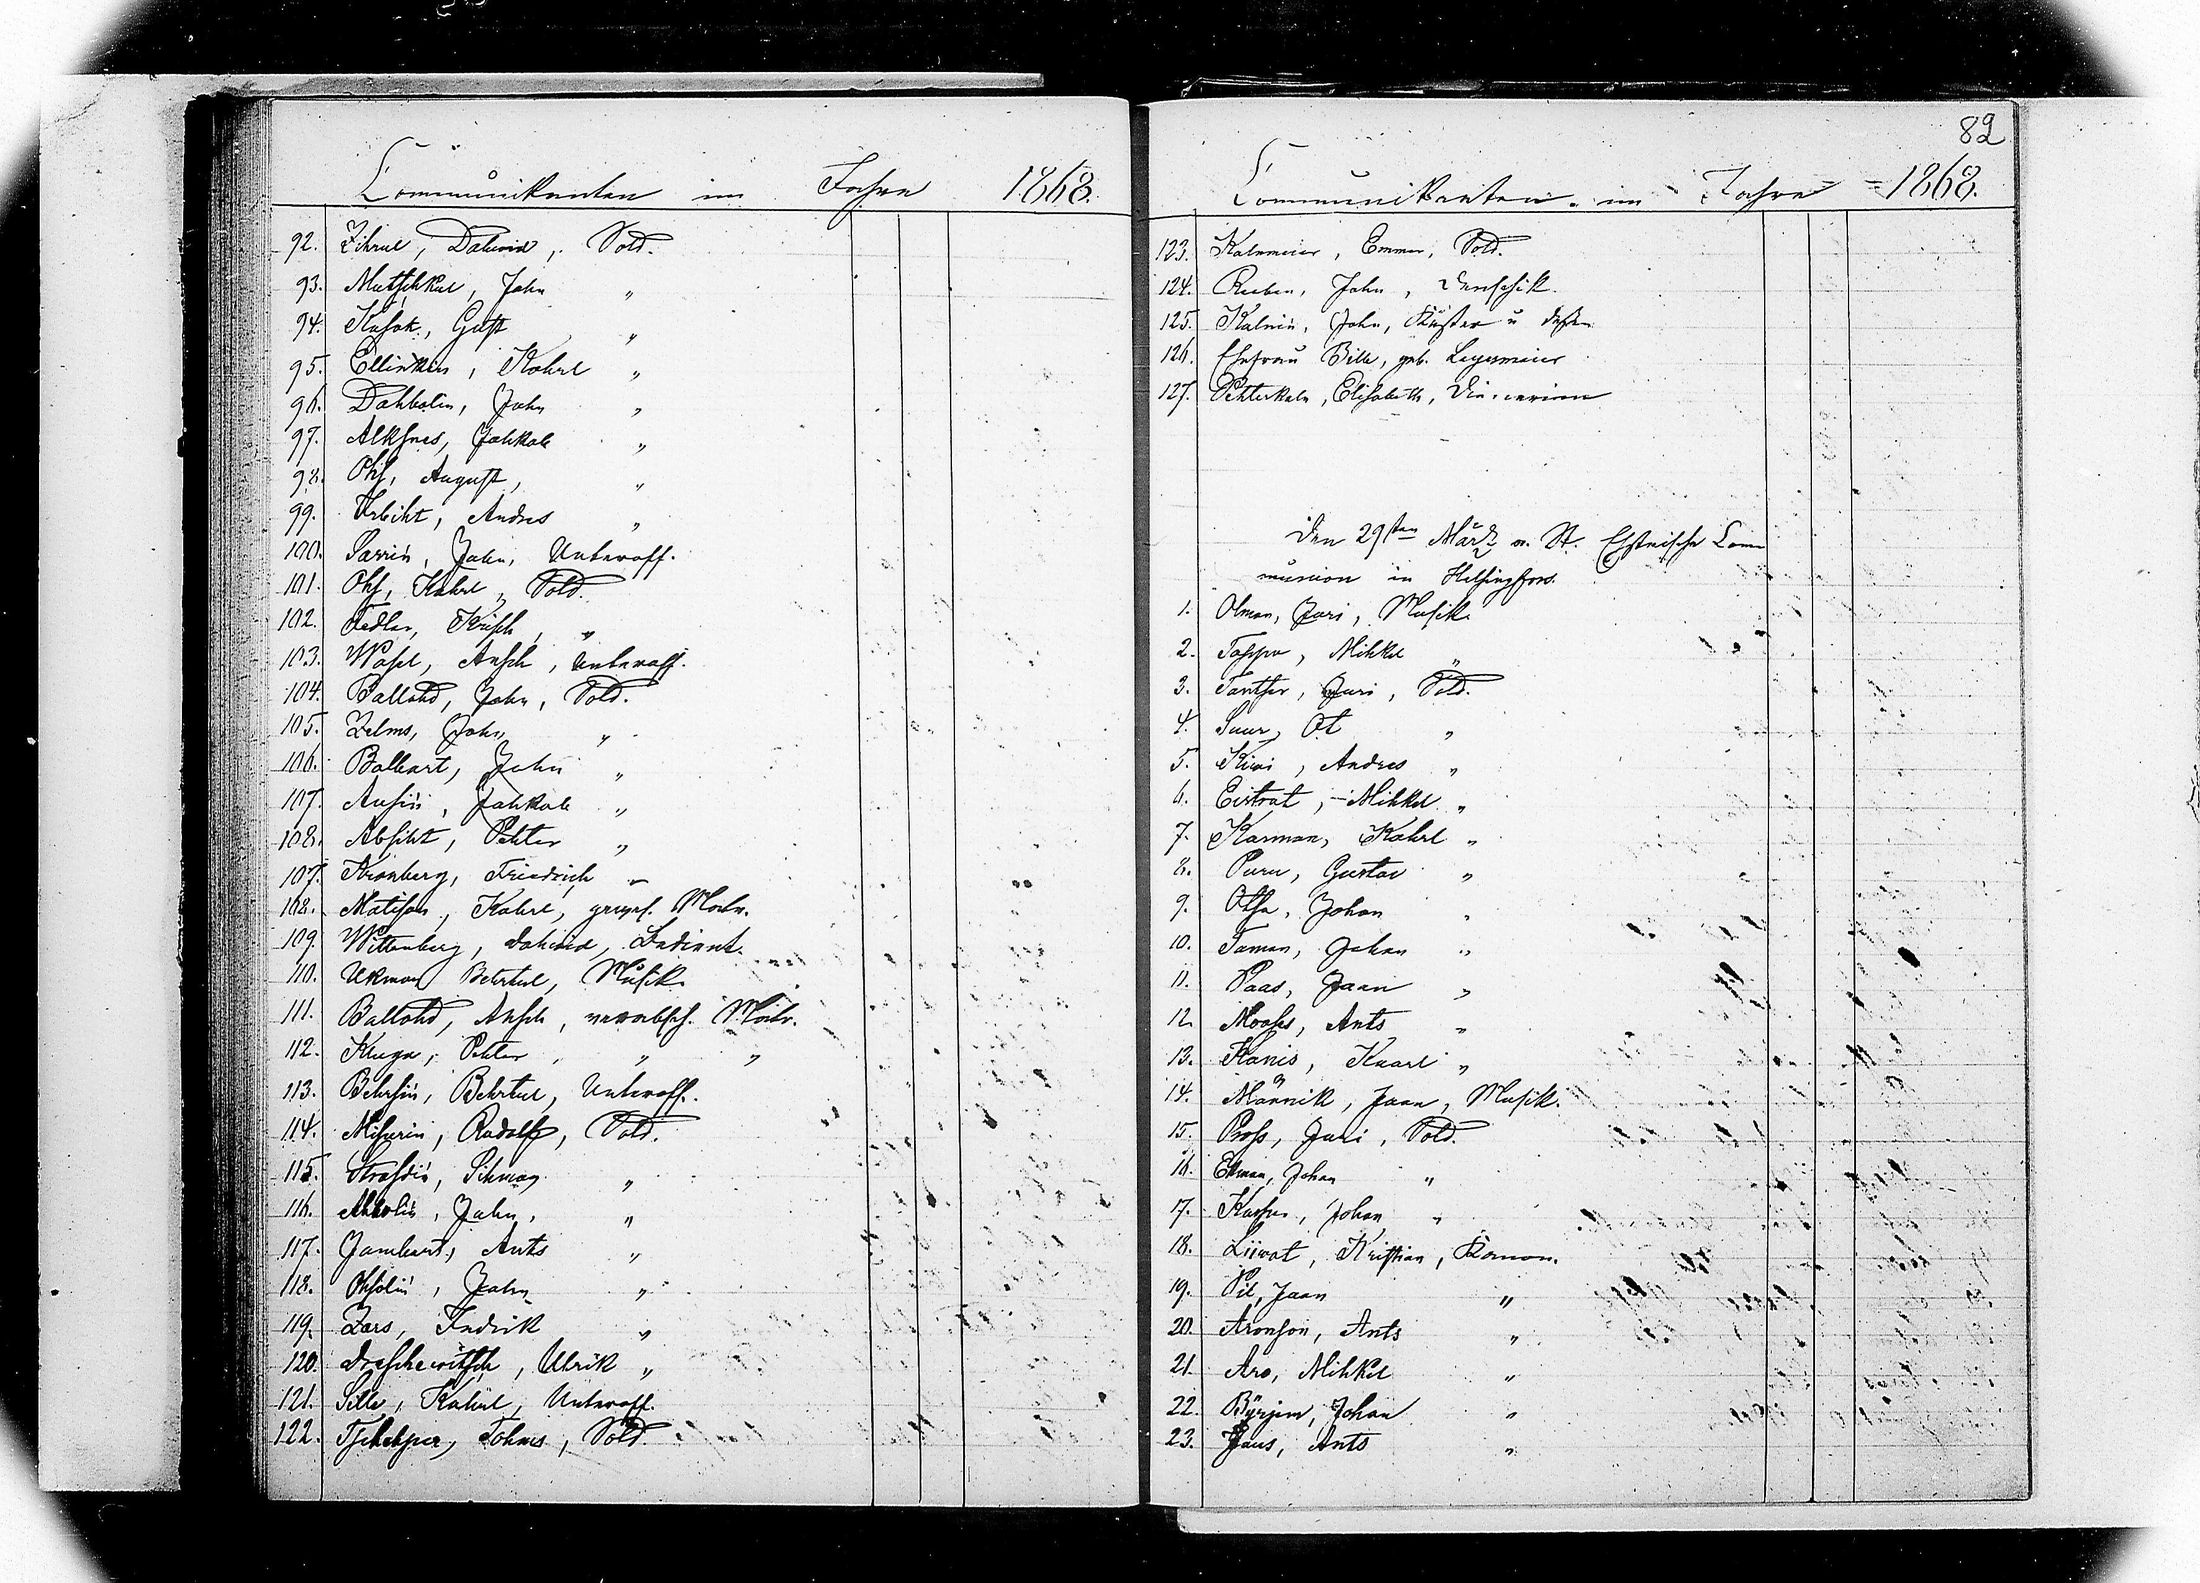 Communikanten im Jahre 1868.
92. Zihrul, Dahwid, Sold.
93. Mutschkul, John "
94. Kasak, Gust "
95. Ellinkin, Kahrl "
96. Dahbolin, John "
97. Alksnes, Jahkob "
98. Ohs, August, "
99. Urbiht, Andres "
100. Sarrin, Jahn, Unteroff.
101. Ohs, Kahrl, Sold.
102. Fedler, Krisch, "
103. Wasel, Ansch, Unteroff.
104. Ballohd, Jahn, Sold.
105. Zelms, John "
106. Ballart, John "
107. Ausin, Jahkob "
108. Absiht, Pehter "
107. Kronberg, Friedrich "
108. Matison, Kahrl, Mastr.
109. Wittenberg, Dahwid,
110. Ukman Behrtul, Musik.
111. Ballohd, Ansch, verabsch.
112. Kluga, Pehter, " "
113. Behrsin, Behrtul, Unteroff.
114. Misurin, Rudolf, Sold.
115. Strasdin, Sihman "
116. Ahbolin, Jahn, "
117. Jamburt, Ants "
118. Ohsolin, Jahn "
119. Zars, Indrik "
120. Draschewitsch, Ulrik "
121. Sille, Kahrl, Unteroff.
122. Tohms, Sold.
82
Communikanten im Jahre 1868.
123. Kalnmeier, Emmer, Sold.
124. Reeben, John, Denschik.
125. Kalnin, John, Küster u dessen
126. Ehefrau Bille, geb. Legsmeier
127. Pehterkaln, Elisabeth, Dienerinn
Den 29sten März a. St. Ehstnische Com
munion in Helsingfors.
1. Olman, Juri, Musik.
2. Mihkel "
3. Juri, Sold.
4. Suur, Ot "
5. Kiwi, Andres "
6. Eistrat, Mihkel "
7. Karman, Kahrl "
8. Puru, Gustav "
9. Otsa, Johan "
10. Taman, Johan "
11. Paas, Jaan "
12. Mooses, Ants "
13. Kanis, Kaarl "
14. Männik, Jaan, Musik.
15. Pross, Juri, Sold.
16. Ellman, Johan "
17. Johan "
18. Liiwat, Kristian, Kanon.
19. Pil, Jaan "
20. Aronson, Ants "
21. Aro, Mihkel "
22. Johan "
23. Ants "